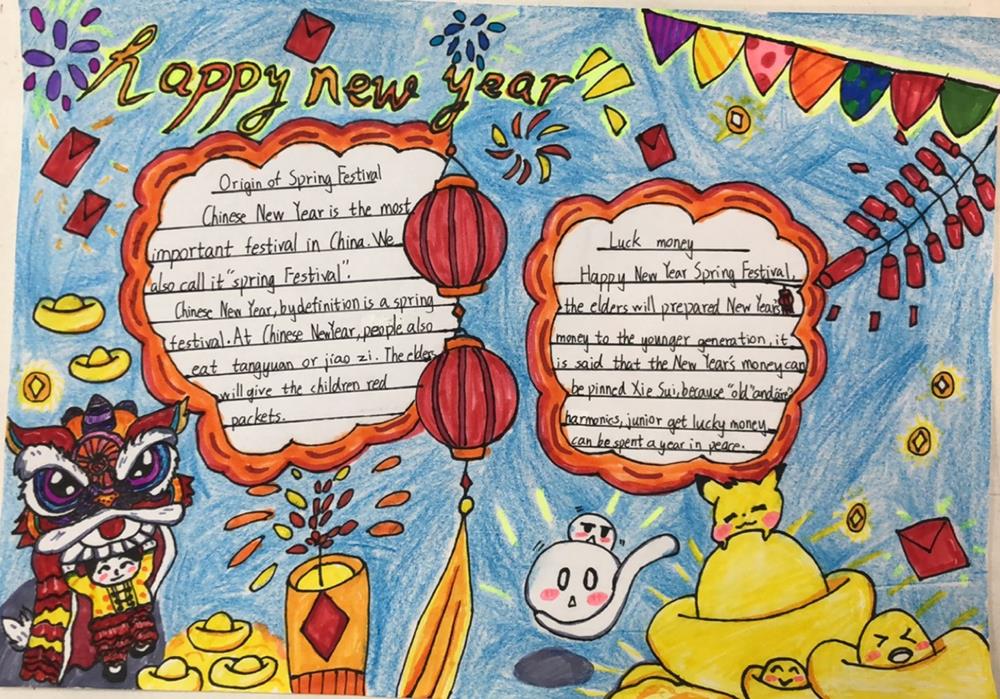 Happy new year
Origin of Spring Festival
Chinese New Year is the most
important festival in China. We
also call it "spring Festival".
Chinese New Year, by definition is a spring
festival. At Chinese New Year, people also
eat tangyuan or jiao zi. The elders
will give the children red
packets.
Luck money
Happy New Year Spring Festival,
the elders will prepared New Year's
money to the younger generation, it
is said that the New Year's money can
be pinned Xie Sui, because "old" and
harmonics, junior get lucky money
can be spent a year in peace.